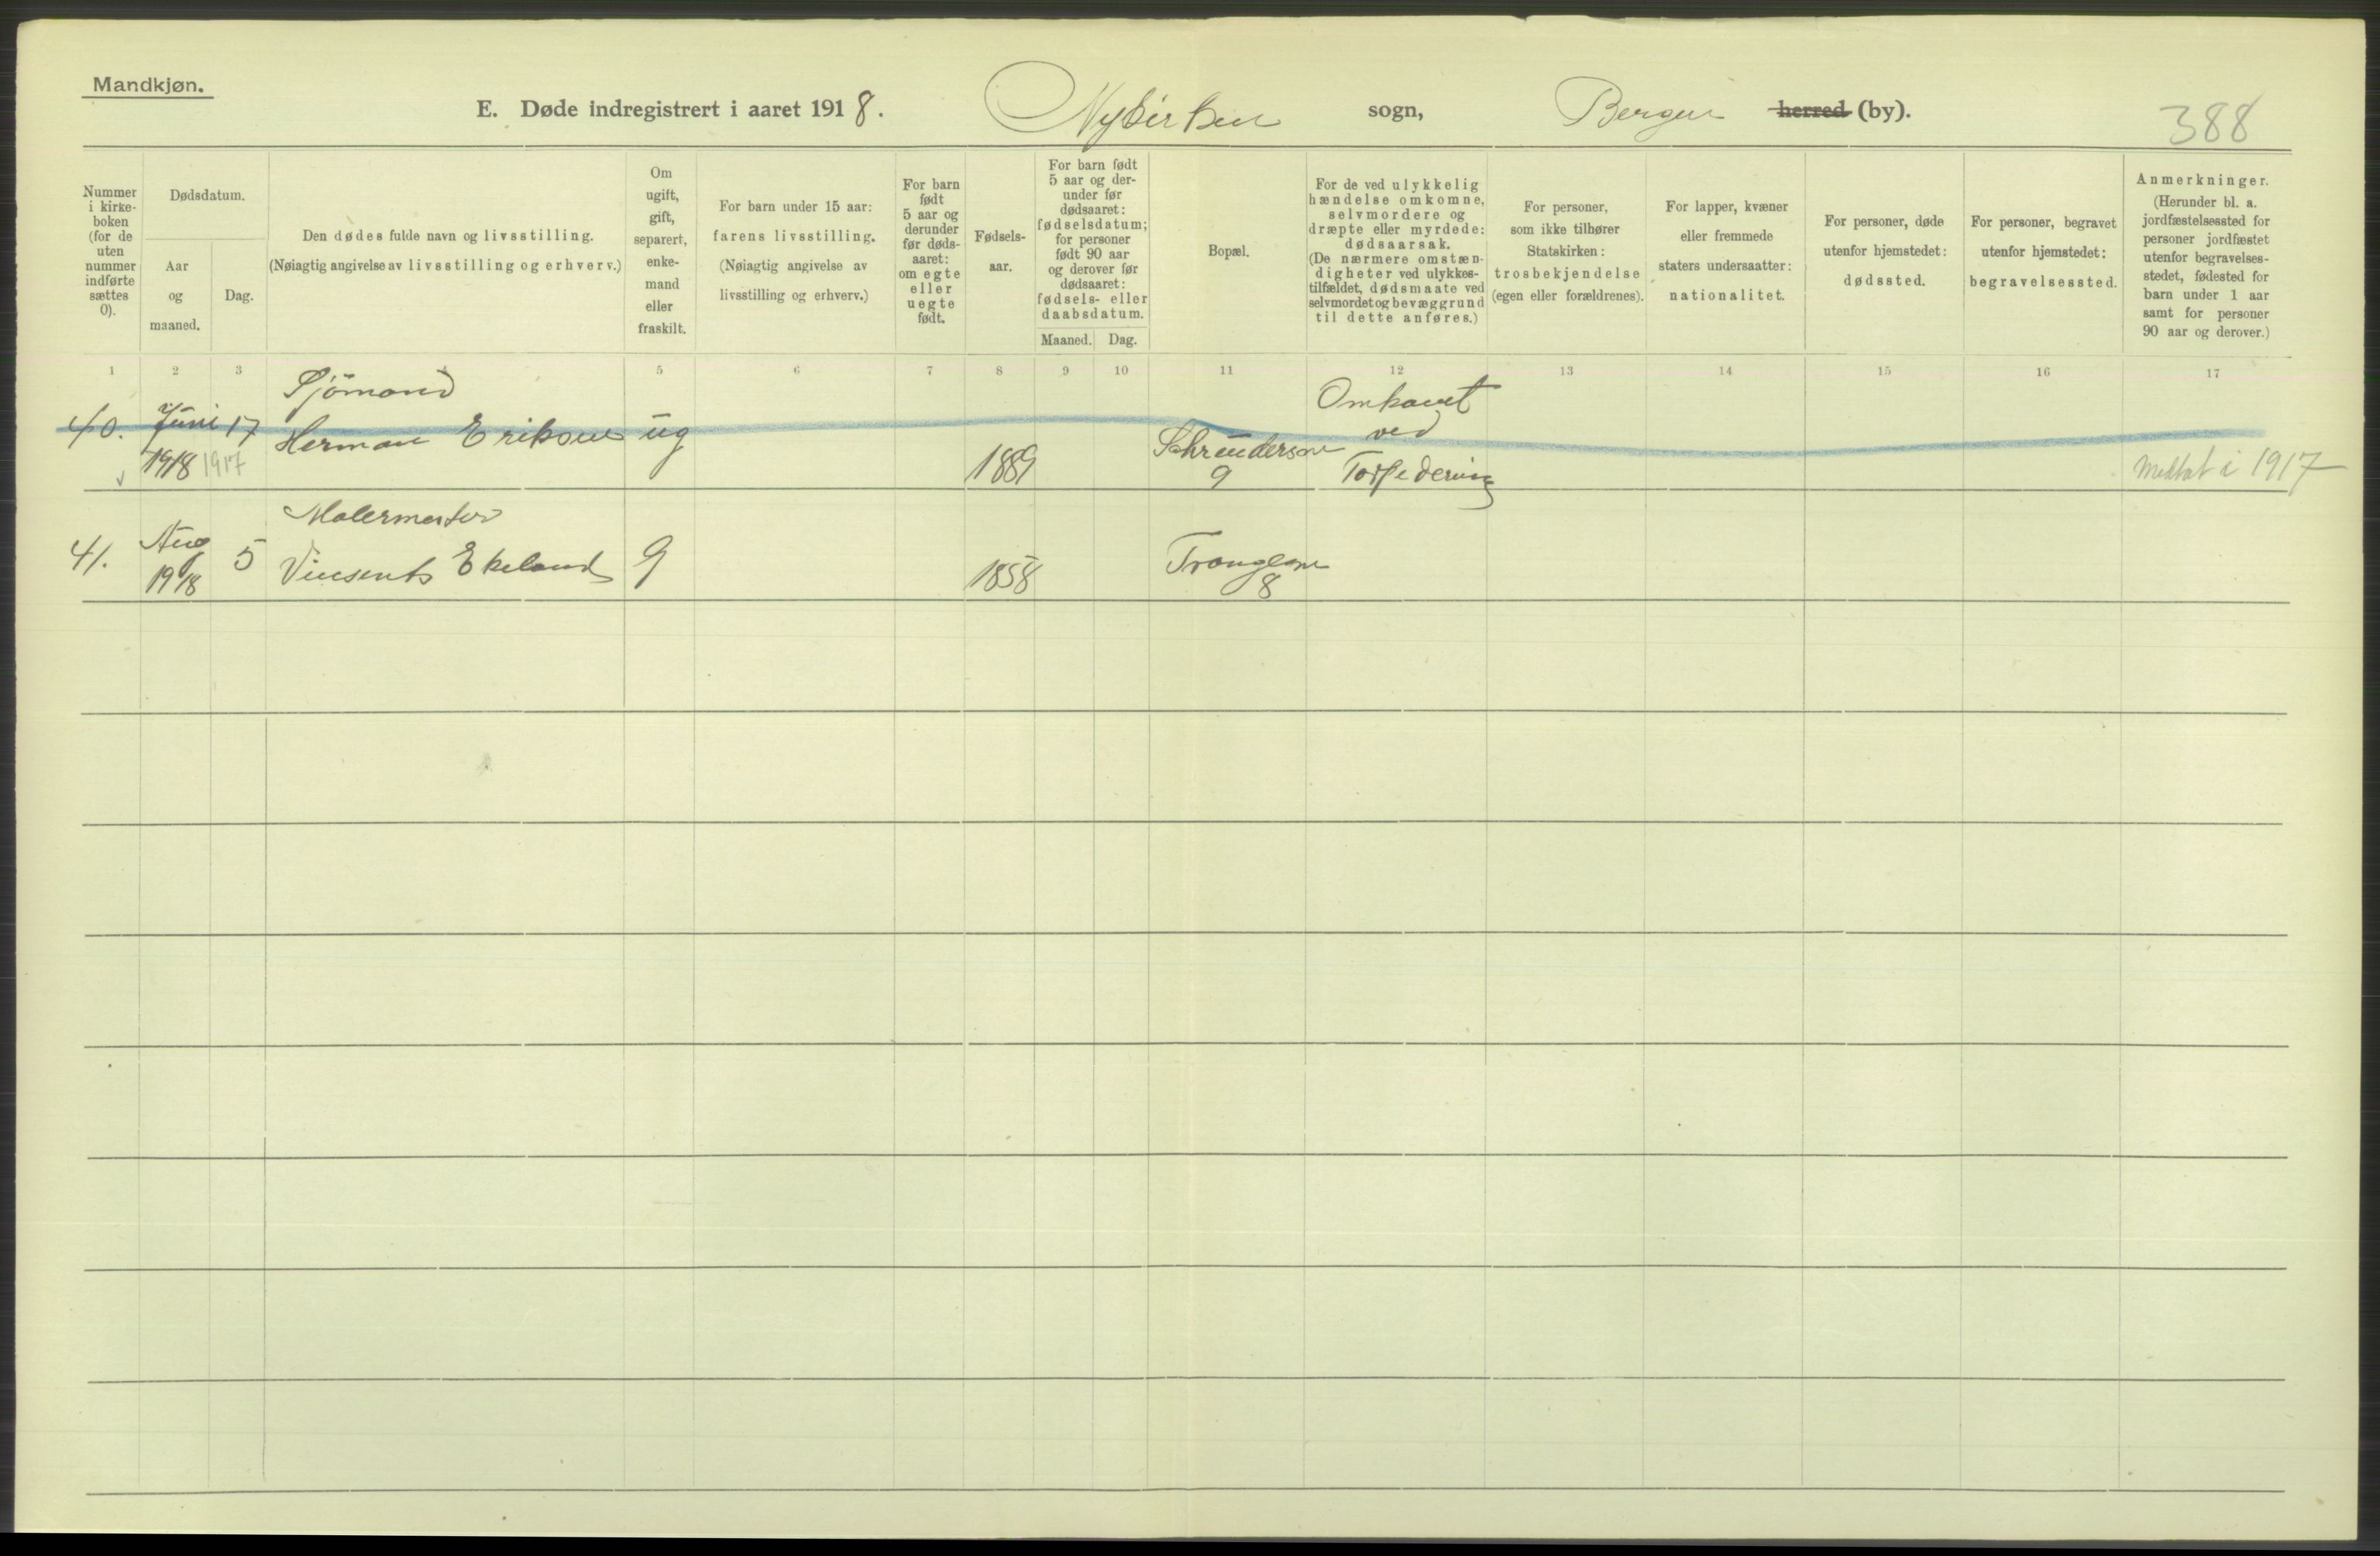 Mandkjøn.
E. Døde indregistrert i aaret 1918. Nykirken sogn, Bergen herred (by).
388
Nummer i kirke-boken (for de uten nummer indførte sættes 0).
Dødsdatum.
Aar og maaned.
Dag.
Den dødes fulde navn og livsstilling.
(Nøiagtig angivelse av livsstilling og erhverv.)
Om ugift, gift, separert, enke-mand eller fraskilt.
For barn under 15 aar:
farens livsstilling.
(Nøiagtig angivelse av
livsstilling og erhverv.)
For barn født 5 aar og derunder før døds-aaret: om egte eller uegte født.
Fødsels-aar.
For barn født 5 aar og der-under før dødsaaret: fødselsdatum; for personer født 90 aar og derover før dødsaaret: fødsels- eller daabsdatum.
Maaned. Dag.
Bopæl.
For de ved ulykkelig hændelse omkomne, selvmordere og dræpte eller myrdede: dødsaarsak.
(De nærmere omstæn-digheter ved ulykkes-tilfældet, dødsmaate ved selvmordet og bevæggrund til dette anføres.)
For personer, som ikke tilhører Statskirken: trosbekjendelse (egen eller forældrenes).
For lapper, kvæner eller fremmede staters undersaatter: nationalitet.
For personer, døde utenfor hjemstedet: dødssted.
For personer, begravet utenfor hjemstedet: begravelsessted.
Anmerkninger.
(Herunder bl. a. jordfæstelsessted for personer jordfæstet utenfor begravelses-stedet, fødested for barn under 1 aar samt for personer 90 aar og derover.)
1 2 3 5 6 7 8 9 10 11 12 13 14 15 16 17
Sjömand Omkomet
40. Juni 17 Herman Eriksen ug Schrøudersm ved
1918 1917 1889 9 Torpedering Medtat i 1917
Malermester
41. Aug 5 Vincents Ekeland g Tranglesm
1918 1858 8